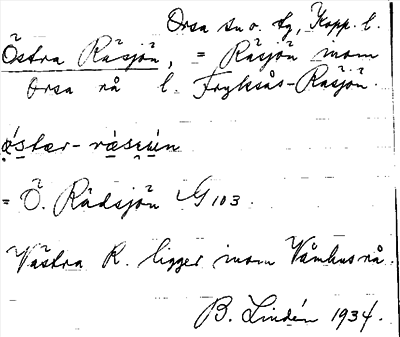 Orsa sn o. tg, Kopp. l.
Östra Räsjön, = Räsjön inom
Orsa rå l. Fryksås-Räsjön.
ǿstær-ræ̀siún
= Ö. Rädsjön G 103.
Västra R. ligger inom Våmhus rå.
B. Lindén 1934.